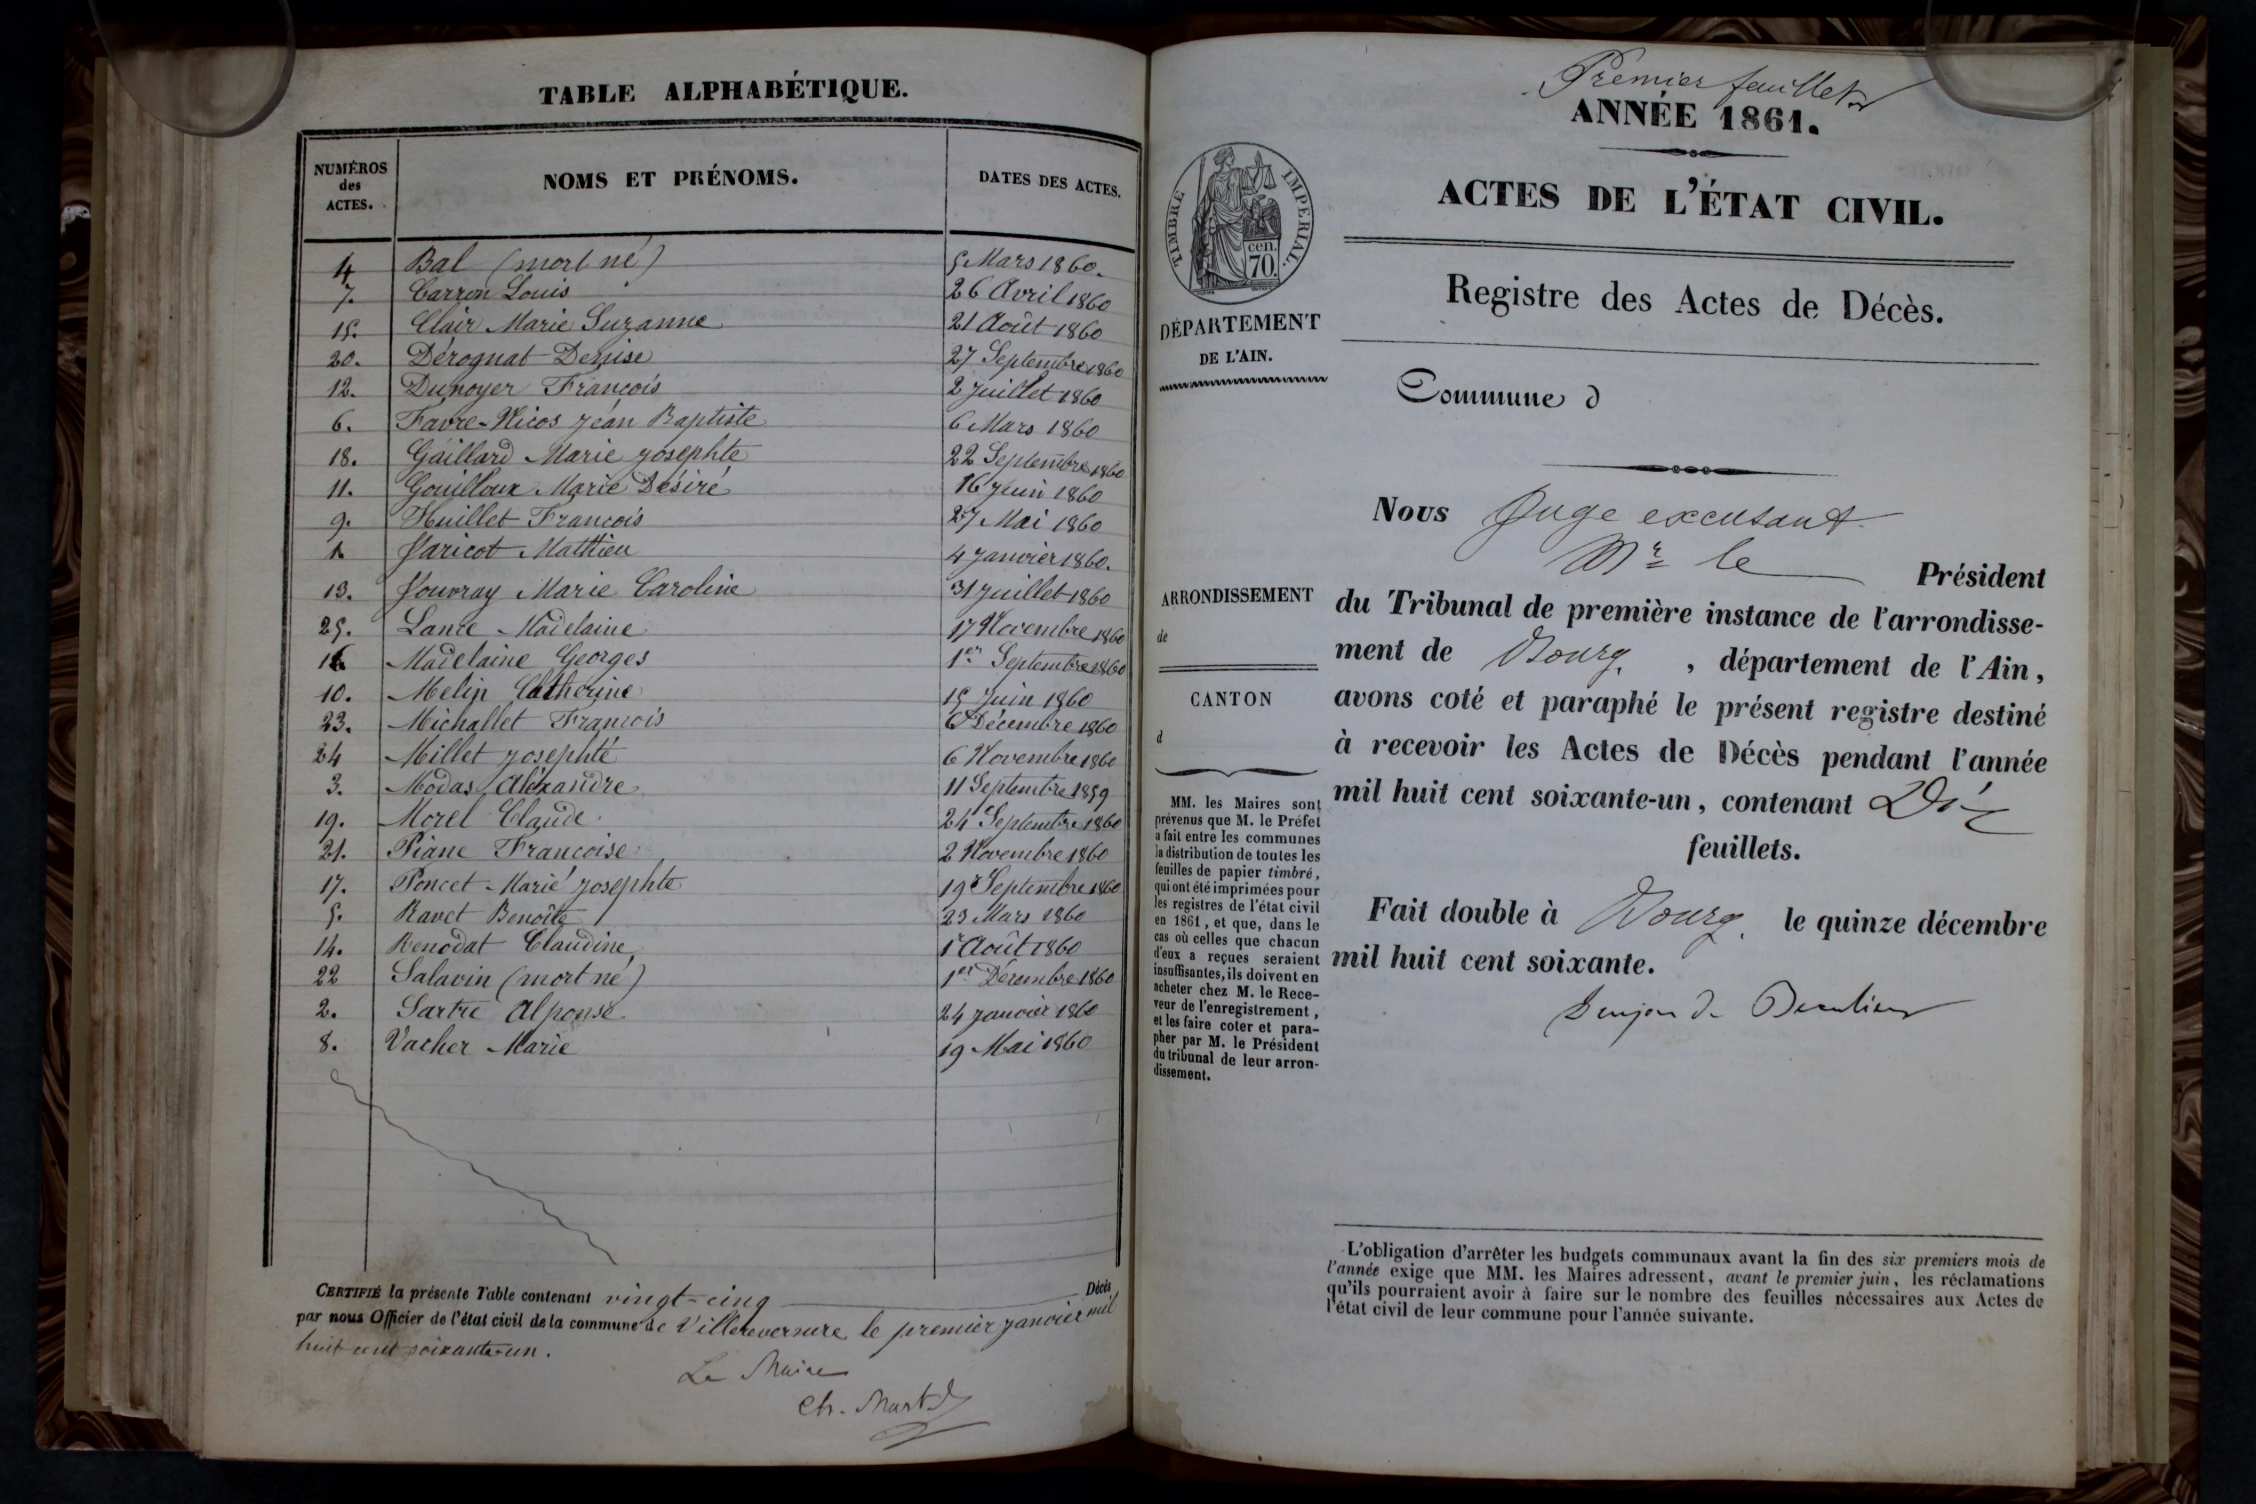 TABLE ALPHABÉTIQUE.
NUMÉROS des ACTES. NOMS ET PRÉNOMS. DATES DES ACTES.
4 Bal (mort né) 5 Mars 1860.
7. Carron Louis 26 Avril 1860
15. Clair Marie Suzanne 21 Août 1860
20. Dérognat Denise 27 Septembre 1860
12. Dunoyer François 2 juillet 1860
6. Favre-Nicos jean Baptiste 6 Mars 1860
18. Gaillard Marie josephte 22 Septembre 1860
11. Gouilloux Marie Désiré 16 juin 1860
9. Huillet François 27 Mai 1860
1. Jaricot Mathieu 4 janvier 1860.
13. Jouvray Marie Caroline 31 juillet 1860
25. Lance Madelaine 17 Novembre 1860
16 Madelaine Georges 1er Septembre 1860
10. Melin Catherine 15 juin 1860
23. Michallet François 6 Décembre 1860
24 Millet josephte 6 Novembre 1860
3. Modas Aléxandre 11 Septembre 1859
19. Morel Claude 24 Septembre 1860
21. Piane Françoise 2 Novembre 1860
17. Poncet Marie josephte 19 Septembre 1860
5. Ravet Benoîte 23 Mars 1860
14. Renodat Claudine 1r Août 1860
22 Salavin (mort né) 1er Décembre 1860
2. Sartre Alponse 24 janvier 1860
8. Vacher Marie 19 Mai 1860
CERTIFIÉ la présente Table contenant vingt-cinq Décès
par nous Officier de l'état civil de la commune de Villereversure le premier janvier mil
huit cent soixante-un.
Le Maire
Ch.
Premier feuillet
ANNÉE 1861.
ACTES DE L'ÉTAT CIVIL.
Registre des Actes de Décès.
Commune d
TIMBRE IMPÉRIAL.
cen.
70.
DÉPARTEMENT
DE L'AIN.
ARRONDISSEMENT
de
CANTON
d
MM. les Maires sont
prévenus que M. le Préfet
a fait entre les communes
la distribution de toutes les
feuilles de papier timbré,
qui ont été imprimées pour
les registres de l'état civil
en 1861, et que, dans le
cas où celles que chacun
d'eux a reçues seraient
insuffisantes, ils doivent en
acheter chez M. le Rece-
veur de l'enregistrement,
et les faire coter et para-
pher par M. le Président
du tribunal de leur arron-
dissement.
Nous Juge excusant
Mr le Président
du Tribunal de première instance de l'arrondisse-
ment de Bourg, département de l'Ain,
avons coté et paraphé le présent registre destiné
à recevoir les Actes de Décès pendant l'année
mil huit cent soixante-un, contenant Dix
feuillets.
Fait double à Bourg. le quinze décembre
mil huit cent soixante.
L'obligation d'arrêter les budgets communaux avant la fin des six premiers mois de
l'année exige que MM. les Maires adressent, avant le premier juin, les réclamations
qu'ils pourraient avoir à faire sur le nombre des feuilles nécessaires aux Actes de
l'état civil de leur commune pour l'année suivante.